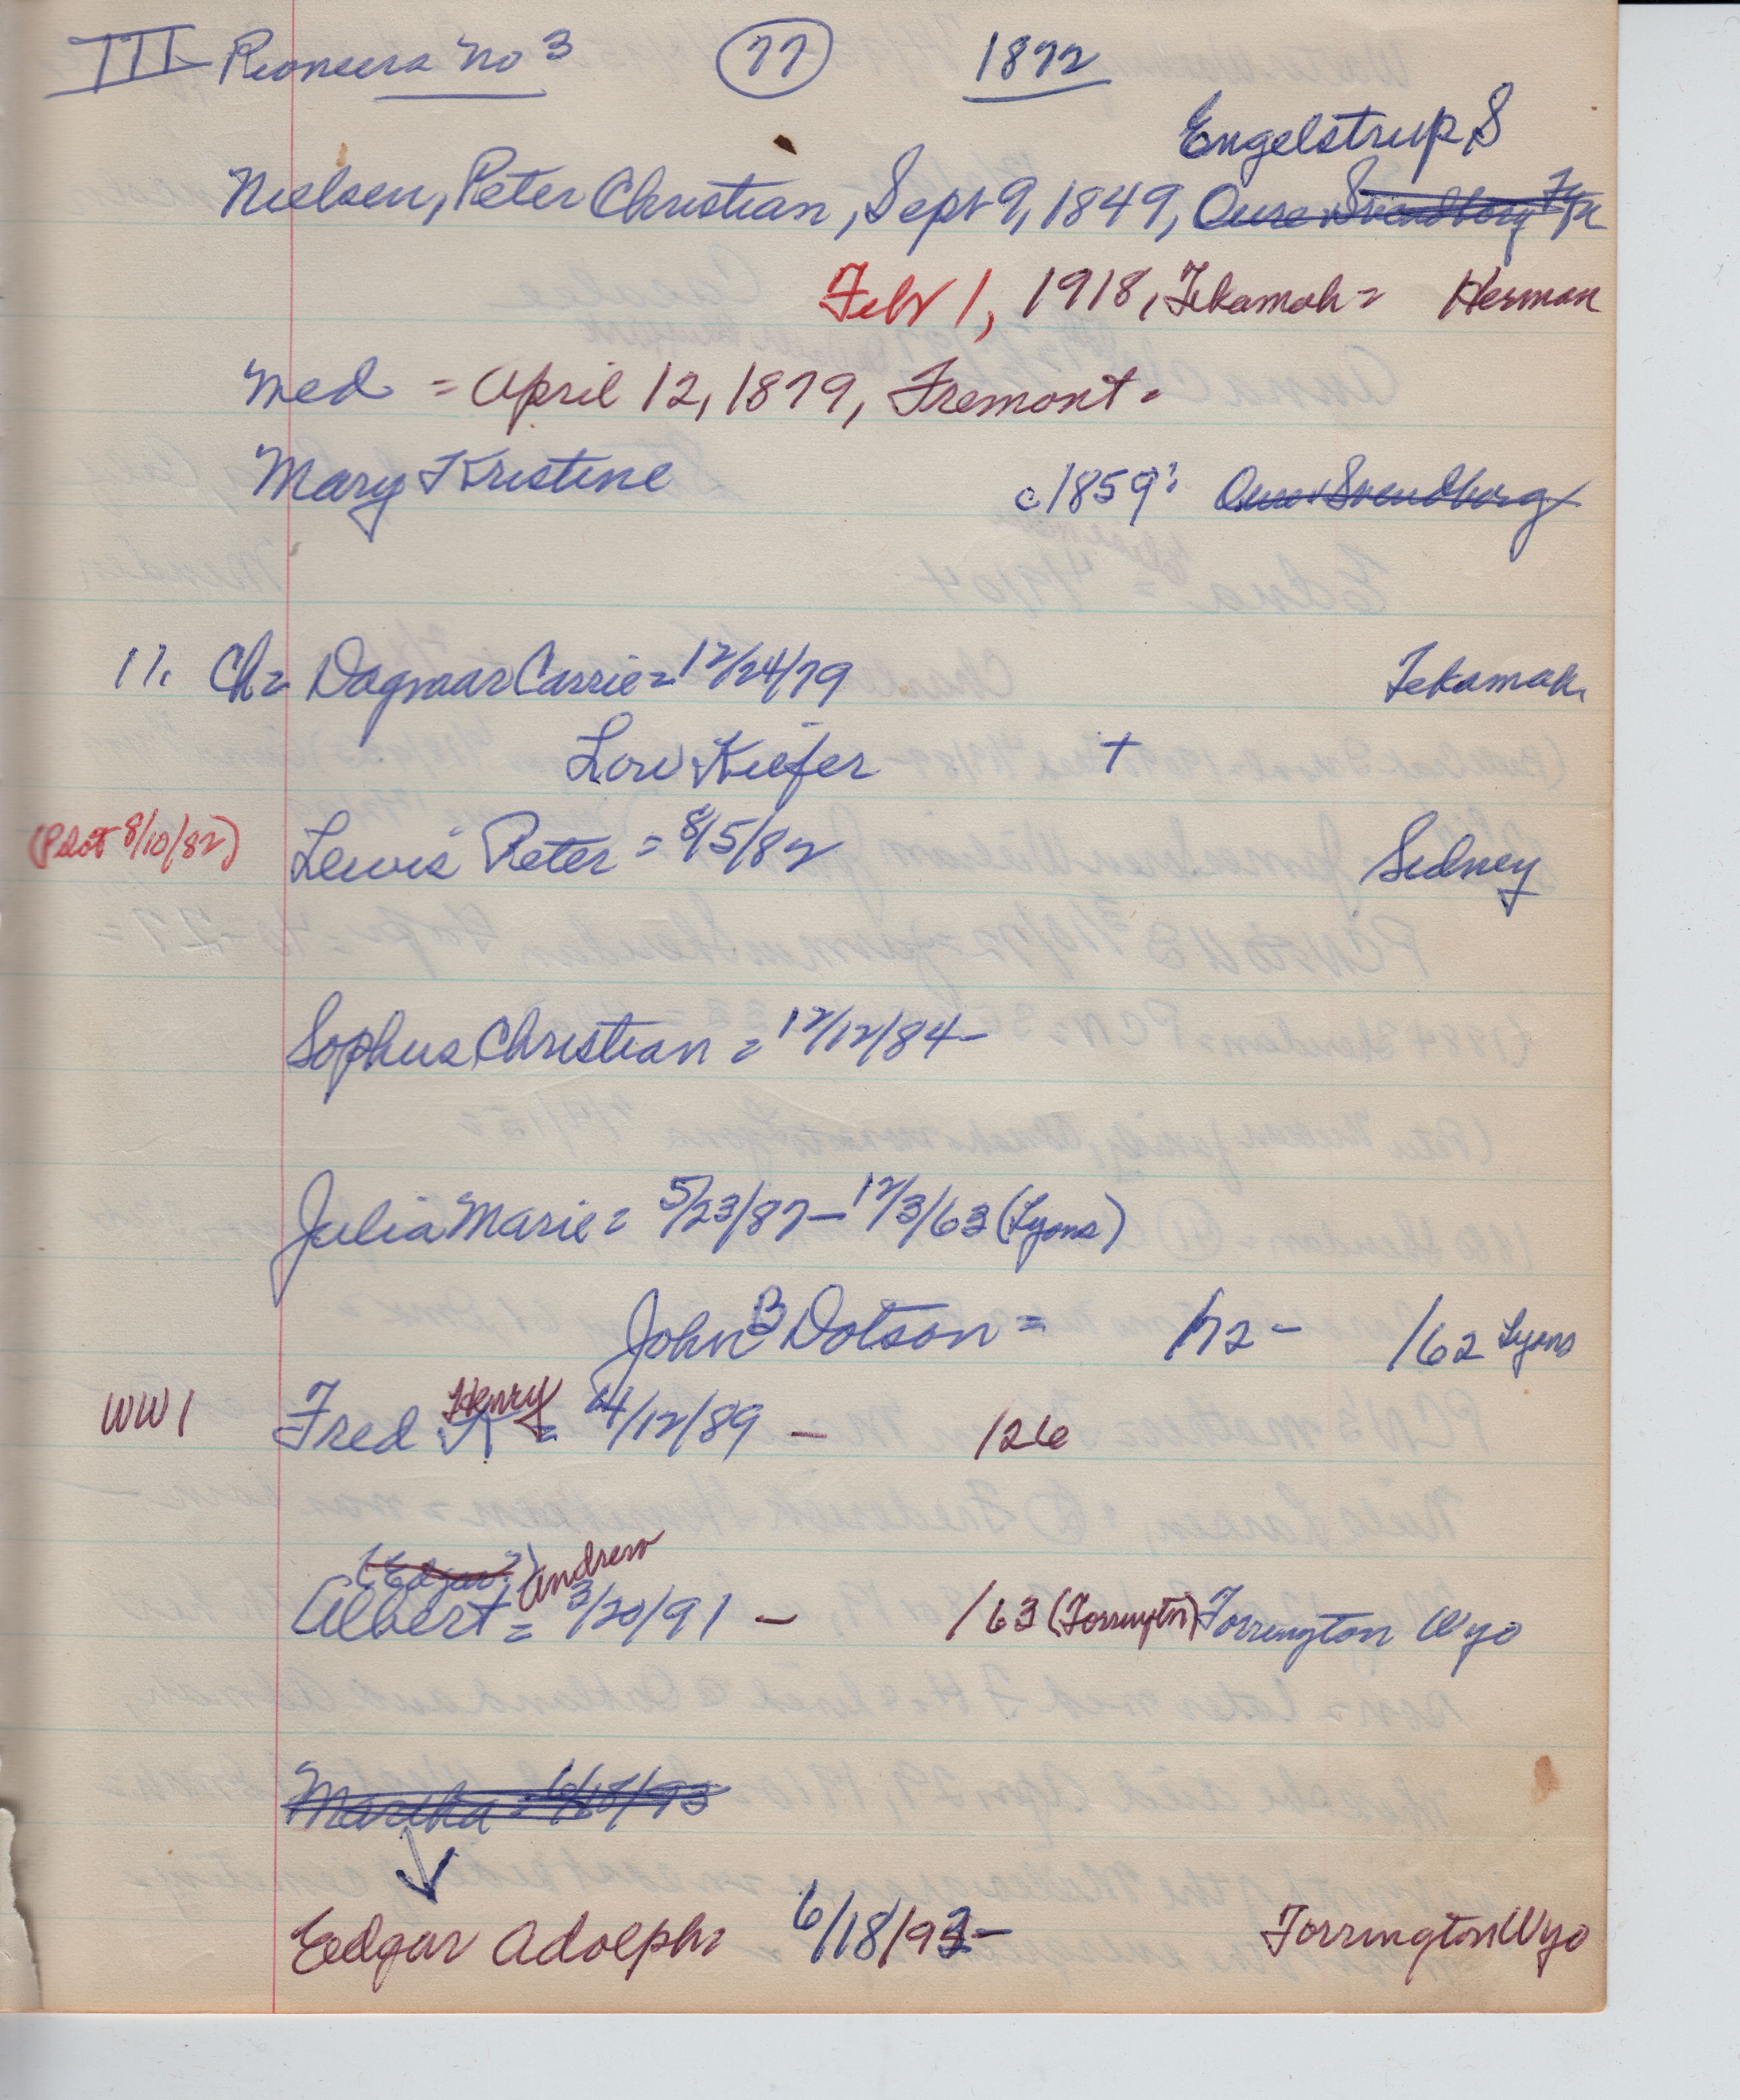 III Pioneers No 3 (77) 1872
Engelstrup, S
Nielsen, Peter Christian, Sept 9, 1849, Oure Svendborg Fyn
Feb 1, 1918, Tekamah = Herman
Med = April 12, 1879, Fremont =
Mary Kristine c1859? Oure Svendborg
11. Ch = Dagmar Carrie = 12/24/79 Tekamah
Lou Kiefer +
(Pilot 8/10/82) Lewis Peter = 8/5/82 Sidney
Sophus Christian = 12/12/84 -
Julia Marie = 5/23/87 - 12/3/63 (Lyons)
John B Dotson = /72 - /62 Lyons
WW1 Fred Henry = 4/12/89 - /26
(Edgar?) Andrew
Albert = 3/20/91 - /63 (Torrington) Torrington Wyo
Martha = 6/18/93
Edgar Adolph 6/18/93 - Torrington Wyo